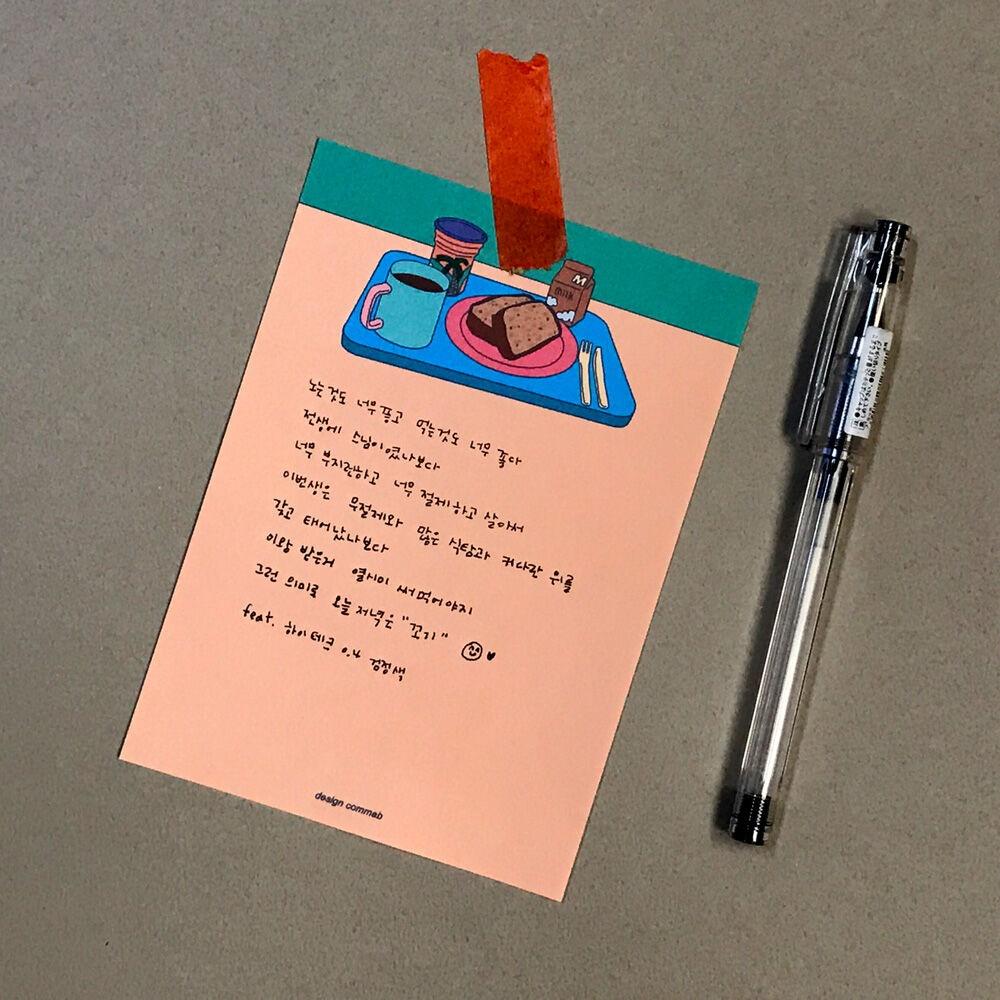 M
milk
노는것도 너무좋고 먹는것도 너무 좋다
전생에 스님이였나보다
너무 부지런하고 너무 절제하고 살아서
이번생은 무절제와 많은 식탐과 커다란 위를
갖고 태어났나보다
이왕 받은거 열시미 써먹어야지
그런 의미로 오늘 저녁은 "꼬기"
feat. 하이테크 0.4 검정색
design commab